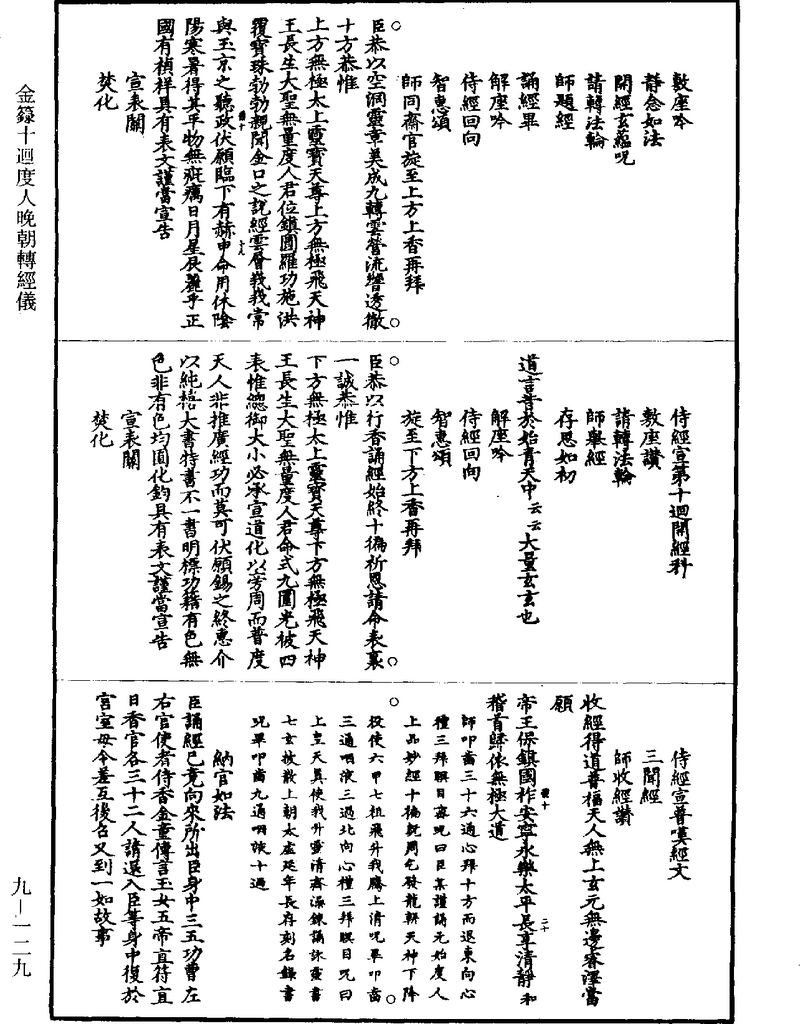 金籙十迴度人晚朝轉經儀
九－一二九
敷座吟
靜念如法
開經玄蘊呪
請轉法輪
師題經
誦經畢
解座吟
侍經回向
智惠頌
師同齋官旋至上方上香再拜
臣恭以空洞靈章美成九轉雲營流響透徹
十方恭惟
上方無極太上靈寶天尊上方無極飛天神
王長生大聖無量度人君位鎮圓羅功施洪
覆寶珠勃勃親聞金口之說經雲層峩峩常
與玉京之聽政伏願臨下有赫申命用休陰
陽寒暑得其平物無疵癘日月星辰麗乎正
國有禎祥具有表文謹當宣告
宣表關
焚化
侍經宣第十迴開經科
敷座讚
請轉法輪
師舉經
存思如初
道言昔於始青天中云云大量玄玄也
解座吟
侍經回向
智惠頌
旋至下方上香再拜
臣恭以行香誦經始終十徧祈恩請命表裏
一誠恭惟
下方無極太上靈寶天尊下方無極飛天神
王長生大聖無量度人君命式九圍光被四
表惟總御大小必承宣道化以旁周而普度
天人非推廣經功而莫可伏願錫之終惠介
以純禧大書特書不一書明標功籍有色無
色非有色均圓化鈞具有表文謹當宣告
宣表關
焚化
侍經宣普嘆經文
三聞經
師收經讚
收經得道普福天人無上玄元無邊睿澤當
願
帝王保鎮國祚安寧永樂太平長享清靜和
稽首歸依無極大道
師叩齒三十六通心拜十方而退東向心
禮三拜瞑目密呪曰臣某謹誦元始度人
上品妙經十徧既周乞發龍軿天神下降
役使六甲七祖飛升我騰上清呪畢叩齒
三通咽液三過北向心禮三拜瞑目呪曰
上皇天真使我升靈清齋澡鍊誦詠靈書
七玄披散上朝太虛延年長存刻名錄書
呪畢叩齒九通咽液十過
納官如法
臣誦經已竟向來所出臣身中三五功曹左
右官使者侍香金童傳言玉女五帝直符直
日香官各三十二人請還入臣等身中復於
宮室毋令差互後召又到一如故事